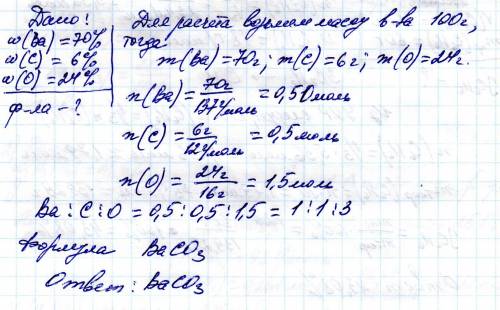 Дано!
ω(Ba)=70%
ω(C)= 6%
ω(O)=24%
ф-ла-?
Для расчета возьмем массу в-ва 100г,
тогда
m(Ba)=70г; m(C)=6г; m(O)=24г.
n(Ba)= 70г / 137г/моль = 0,50моль
n(C)= 6г / 12г/моль = 0,5моль
n(O)= 24г / 16г = 1,5моль
Ba:C:O = 0,5:0,5:1,5 = 1:1:3
Формула BaCO₃
Ответ: BaCO₃